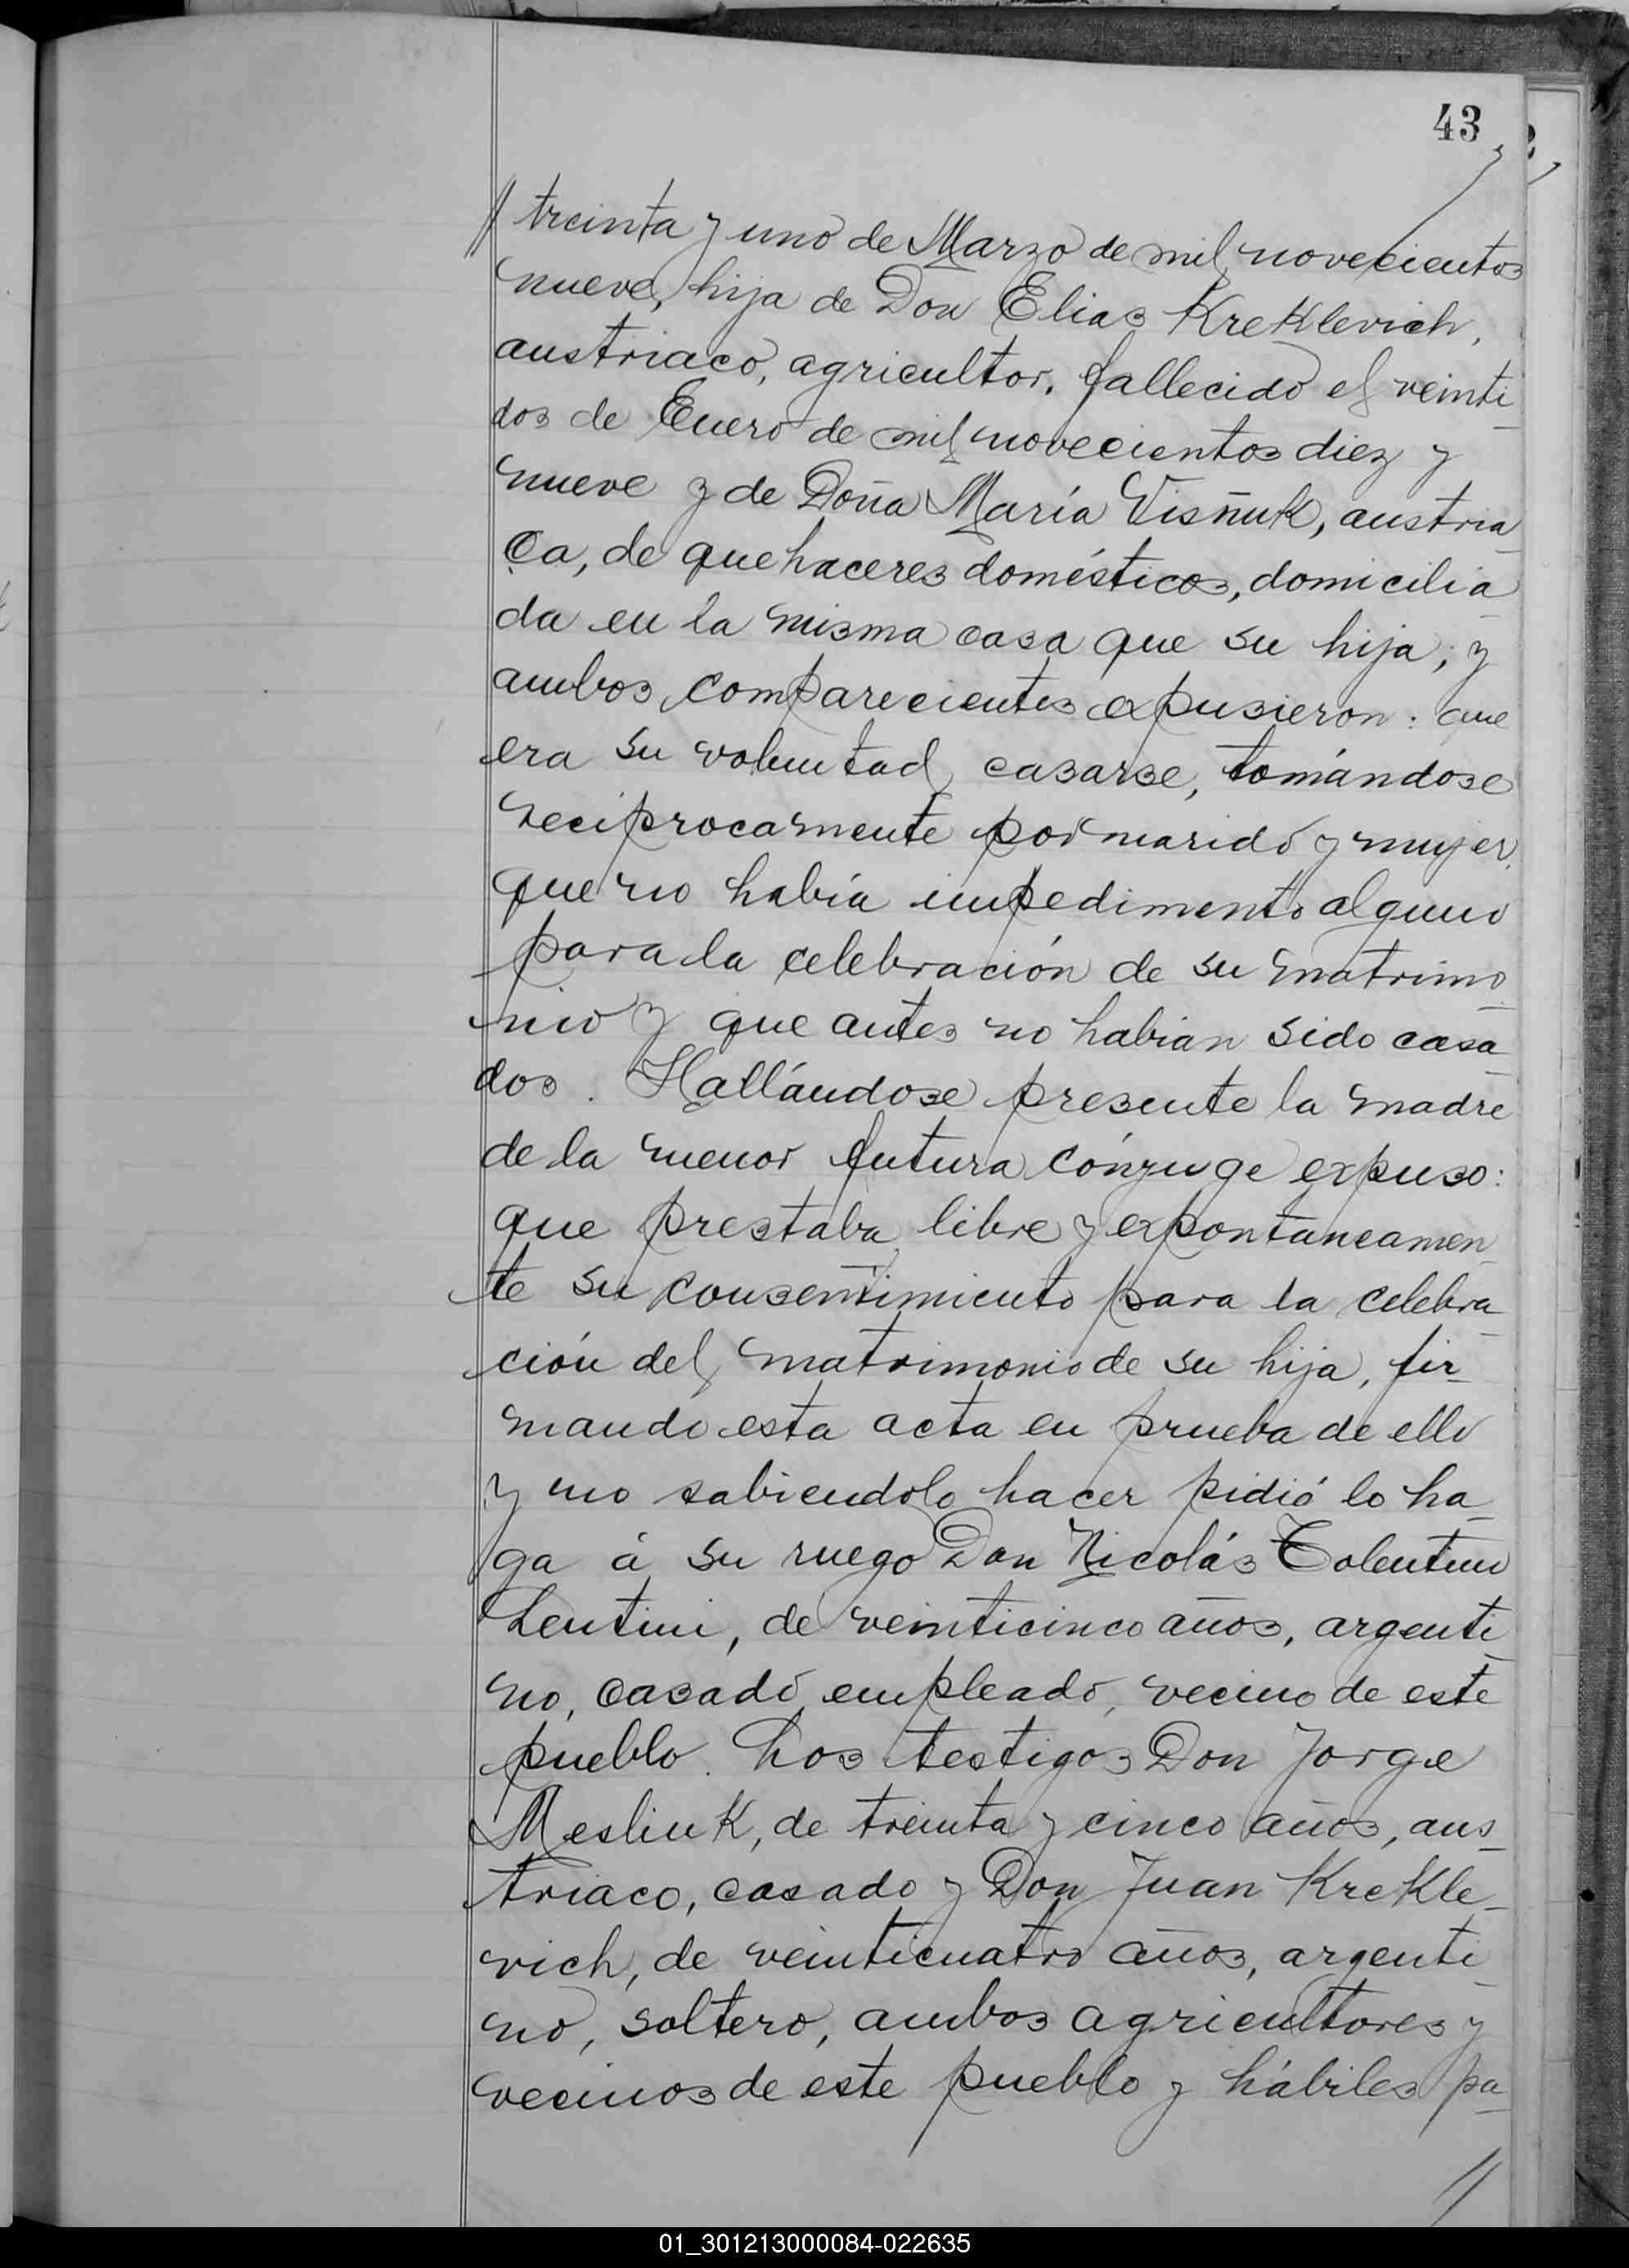 43
// treinta y uno de Marzo de mil novecientos
nueve, hija de Don Elias Kreklevich,
austriaco, agricultor, fallecido el veinti
dos de Enero de mil novecientos diez y
nueve y de Doña María Visñuk, austria
ca, de quehaceres domésticos, domicilia
da en la misma casa que su hija; y
ambos comparecientes expusieron: que
era su voluntad casarse, tomándose
reciprocamente por marido y mujer,
que no había impedimento alguno
para la celebración de su matrimo
nio y que antes no habian sido casa
dos. Hallándose presente la madre
de la menor futura cónyuge expuso:
que prestaba libre y expontaneamen
te su consentimiento para la celebra
ción del matrimonio de su hija, fir
mando esta acta en prueba de ello
y no sabiendolo hacer pidió lo ha
ga á su ruego Don Nicolás Tolentino
Lentini, de veinticinco años, argenti
no, casado, empleado, vecino de este
pueblo. Los testigos Don Jorge
Mesliuk, de treinta y cinco años, aus
triaco, casado y Don Juan Krekle
vich, de veinticuatro años, argenti
no, soltero, ambos agricultores y
vecinos de este pueblo y hábiles pa
//
01_301213000084-022635